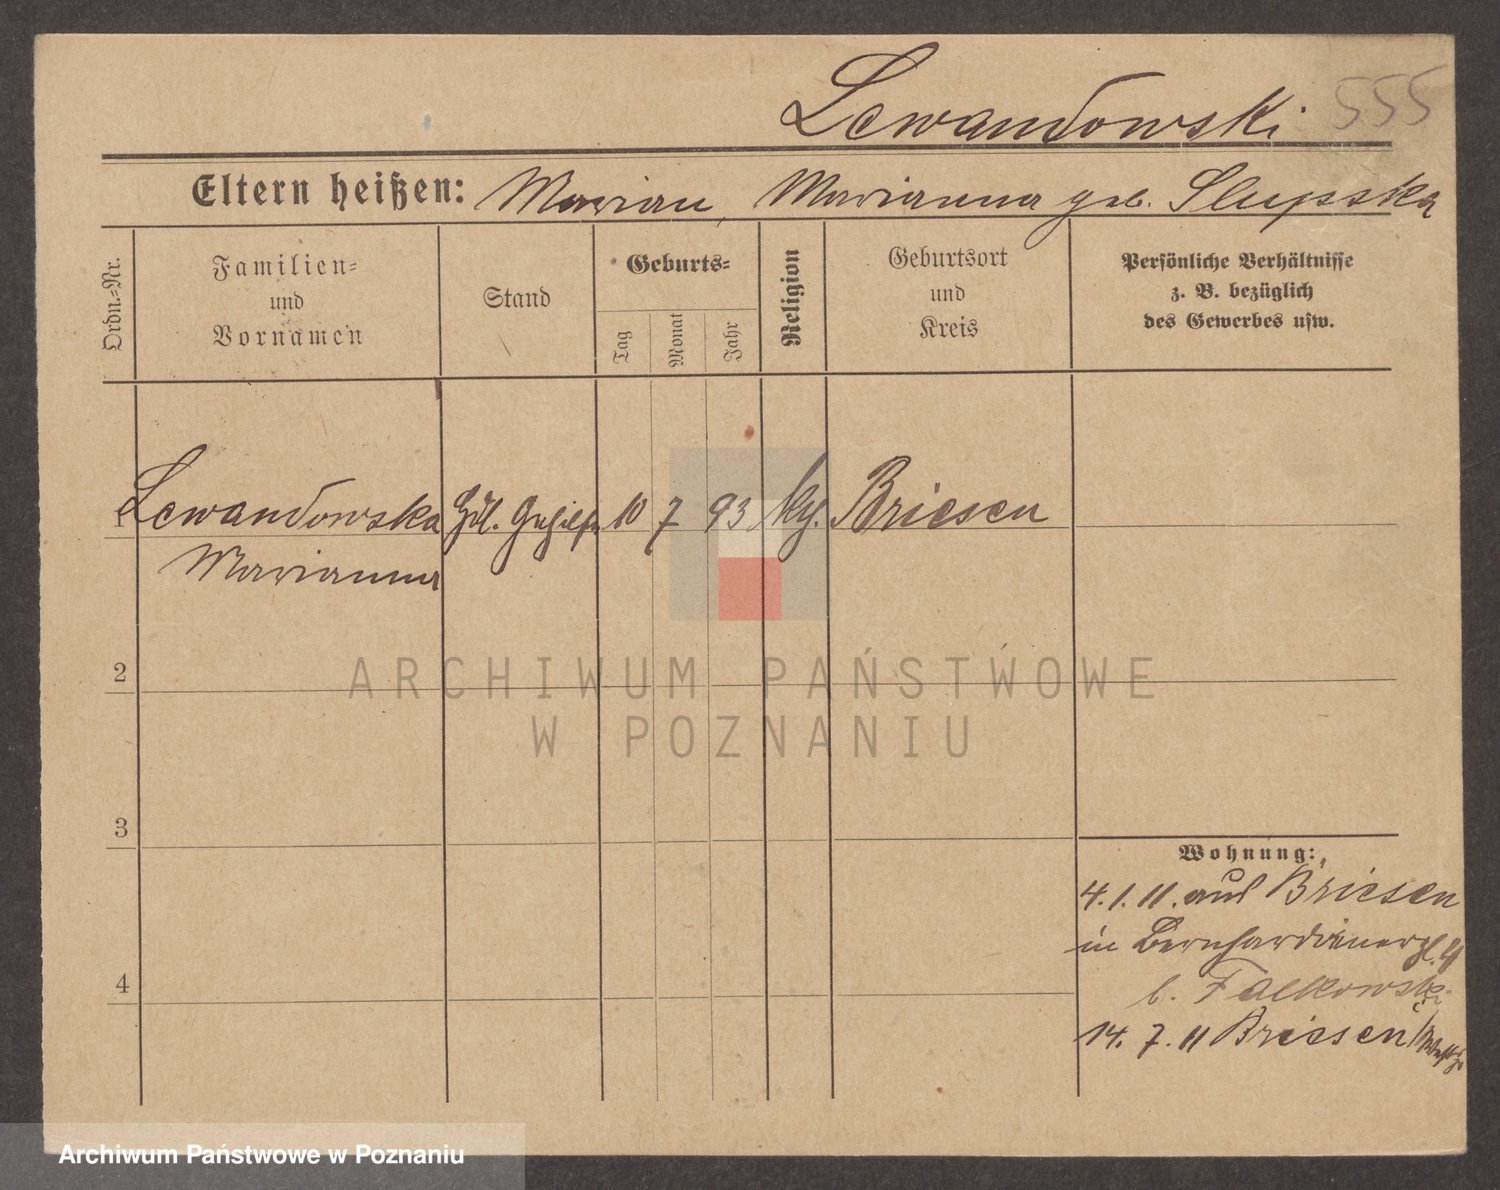 555
Lewandowski
Eltern heißen: Marian, Marianna geb. Slupska
Ordn.-Nr.
Familien-
und
Vornamen
Stand
Geburts-
Tag
Monat
Jahr
Religion
Geburtsort
und
Kreis
Persönliche Verhältnisse
z. B. bezüglich
des Gewerbes usw.
1 Lewandowska Hdl. Gehilfin 10 7 93 kth. Briesen
Marianna
2
3
4
Wohnung:
4. 1. 11. aus Briesen
in Bernhardinerpl. 4
b. Falkowski
14. 7. 11 Briesen
ARCHIWUM PAŃSTWOWE
W POZNANIU
Archiwum Państwowe w Poznaniu